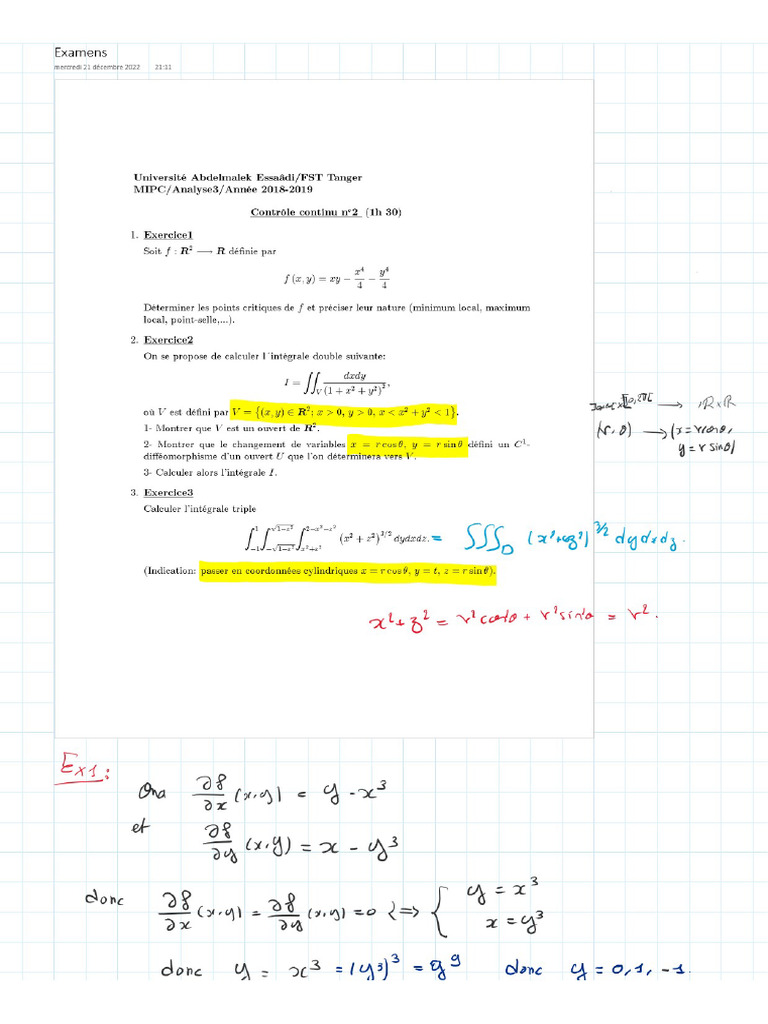 Examens
mercredi 21 décembre 2022 21:11
Université Abdelmalek Essaâdi/FST Tanger
MIPC/Analyse3/Année 2018-2019
Contrôle continu n°2 (1h 30)
1. Exercice1
Soit f : R² ⟶ R définie par
f (x, y) = xy − x⁴/4 − y⁴/4
Déterminer les points critiques de f et préciser leur nature (minimum local, maximum
local, point-selle,...).
2. Exercice2
On se propose de calculer l'intégrale double suivante:
I = ∬_V dxdy/(1 + x² + y²)²,
où V est défini par V = {(x, y) ∈ R²; x > 0, y > 0, x < x² + y² < 1}.
1- Montrer que V est un ouvert de R².
2- Montrer que le changement de variables x = r cos θ, y = r sin θ défini un C¹-
difféomorphisme d'un ouvert U que l'on déterminera vers V.
3- Calculer alors l'intégrale I.
]0,2π[ ⟶ ℝ×ℝ
(r,θ) ⟶ (x = r cosθ,
y = r sinθ)
3. Exercice3
Calculer l'intégrale triple
∫_{-1}^{1} ∫_{-√(1-z²)}^{√(1-z²)} ∫_{x²+z²}^{2-x²-z²} (x² + z²)^{3/2} dydxdz. = ∭_D (x²+z²)^{3/2} dydxdz.
(Indication: passer en coordonnées cylindriques x = r cos θ, y = t, z = r sin θ).
x²+z² = r²cos²θ + r²sin²θ = r².
Ex1:
Ona ∂f/∂x (x,y) = y - x³
et ∂f/∂y (x,y) = x - y³
donc ∂f/∂x (x,y) = ∂f/∂y (x,y) = 0 ⟺ { y = x³
x = y³
donc y = x³ = (y³)³ = y⁹ donc y = 0, 1, -1.